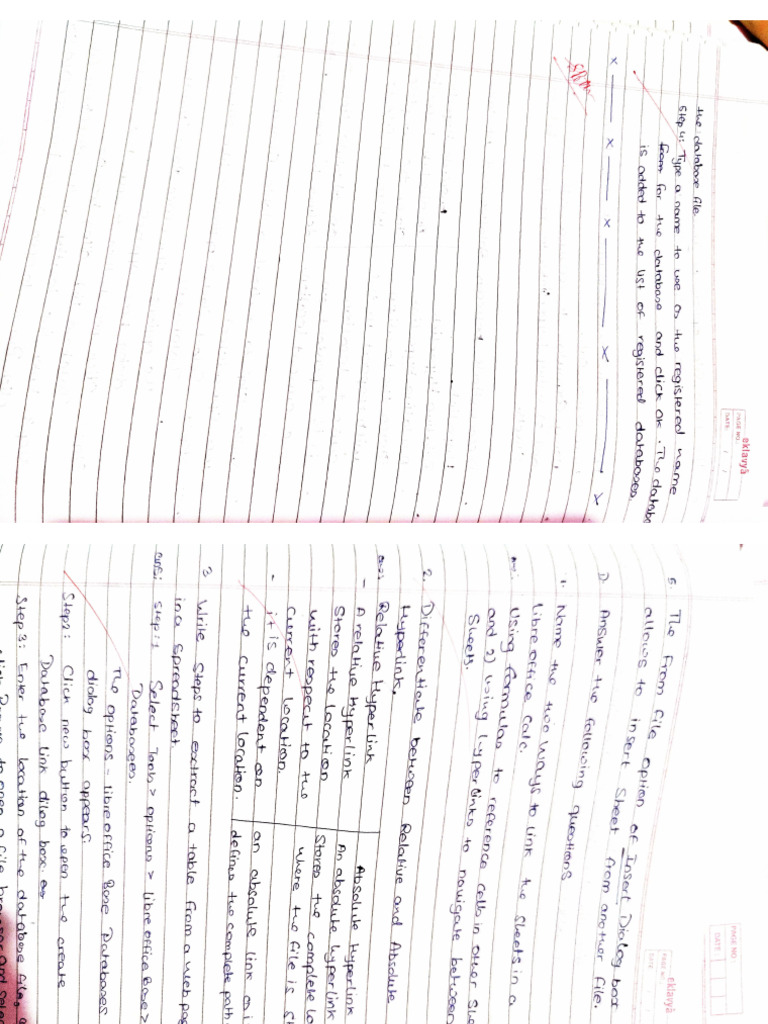 PAGE NO.
DATE
eklavyā
PAGE NO.
DATE / /
5. The from file option of Insert Dialog box
allows to insert Sheet from another file.
D. Answer the following questions
1. Name the two ways to link the sheets in a
libreoffice calc.
Ans: Using formulas to reference cells in other She
and 2) using hyperlinks to navigate between
Sheets.
2. Differentiate between Relative and Absolute
Hyperlink.
Ans: Relative Hyperlink
- A relative hyperlink
Stores the location
with respect to the
current location.
- it is dependent on
the current location.
Absolute Hyperlink
An absolute hyperlink
Stores the complete lo
where the file is st
an absolute link
defines the complete path
3 Write Steps to extract a table from a web pag
in a spreadsheet.
Ans: Step 1: Select Tools > options > libreoffice Base >
Databases.
The options - libreoffice Base Databases
dialog box appears.
Step 2: Click new button to open the create
Database link dilog box.
Step 3: Enter the location of the database file,
to open a file browser and selec
eklavyā
PAGE NO.
DATE / /
the database file
Step 4: Type a name to use as the registered name
from for the database and click OK. The databa
is added to the list of registered databases.
x x x x x